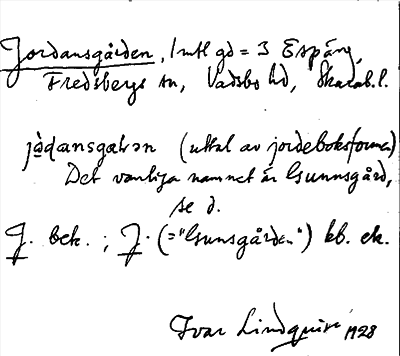 Jordansgården, 1 mtl gd = 3 Espäng,
Fredsbergs sn, Vadsbo hd, Skarab.l.
jo̱dansgaƚən (uttal av jordeboksformen)
Det vanliga namnet är Gunnsgård,
se d.
J. bek. ; J. (="Gunsgården") kb. ek.
Ivar Lindquist 1928